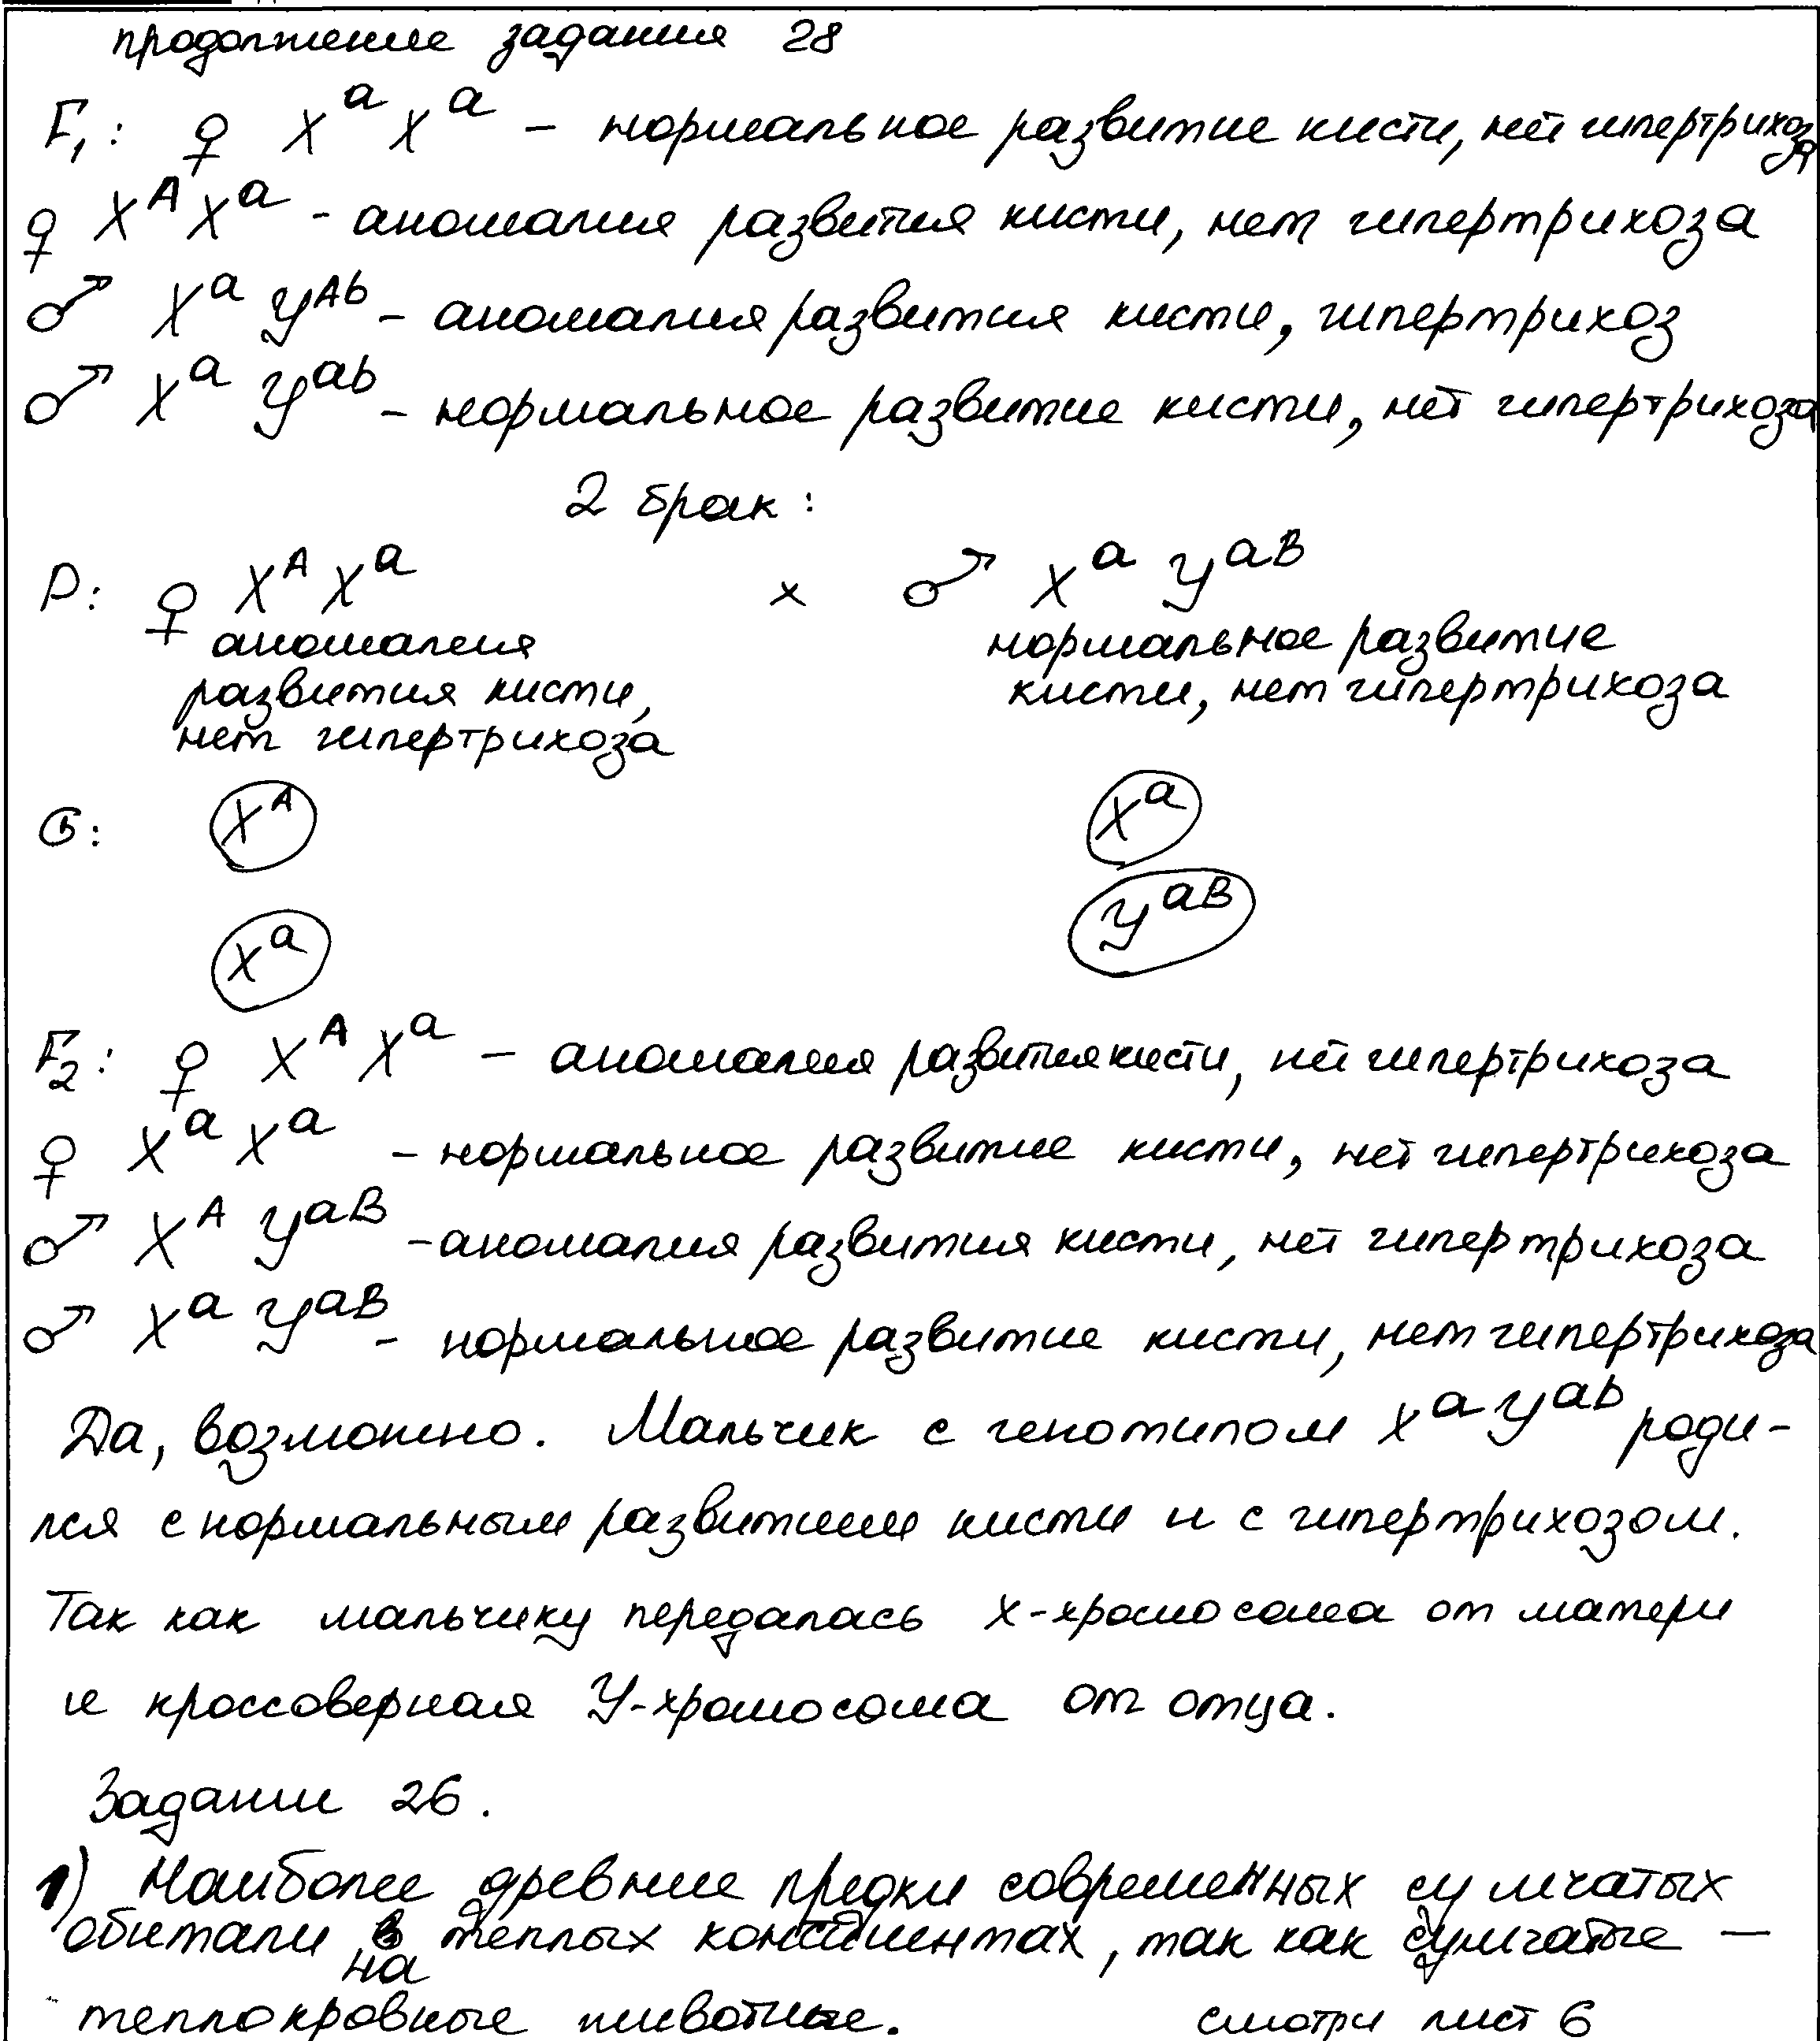 продолжение задания 28
F₁: ♀ Xᵃ Xᵃ – нормальное развитие кисти, нет гипертрихоза
♀ Xᴬ Xᵃ – аномалия развития кисти, нет гипертрихоза
♂ Xᵃ Yᴬᵇ – аномалия развития кисти, гипертрихоз
♂ Xᵃ Yᵃᵇ – нормальное развитие кисти, нет гипертрихоза
2 брак:
P: ♀ Xᴬ Xᵃ × ♂ Xᵃ Yᵃᴮ
аномалия нормальное развитие
развития кисти, кисти, нет гипертрихоза
нет гипертрихоза
G: Xᴬ Xᵃ
Yᵃᴮ
Xᵃ
F₂: ♀ Xᴬ Xᵃ – аномалия развития кисти, нет гипертрихоза
♀ Xᵃ Xᵃ – нормальное развитие кисти, нет гипертрихоза
♂ Xᴬ Yᵃᴮ – аномалия развития кисти, нет гипертрихоза
♂ Xᵃ Yᵃᴮ – нормальное развитие кисти, нет гипертрихоза
Да, возможно. Мальчик с генотипом Xᵃ Yᵃᵇ роди-
лся с нормальным развитием кисти и с гипертрихозом.
Так как мальчику передалась X-хромосома от матери
и кроссоверная Y-хромосома от отца.
Задание 26.
1) Наиболее древние предки современных сумчатых
обитали на теплых континентах, так как сумчатые –
теплокровные животные. смотри лист 6